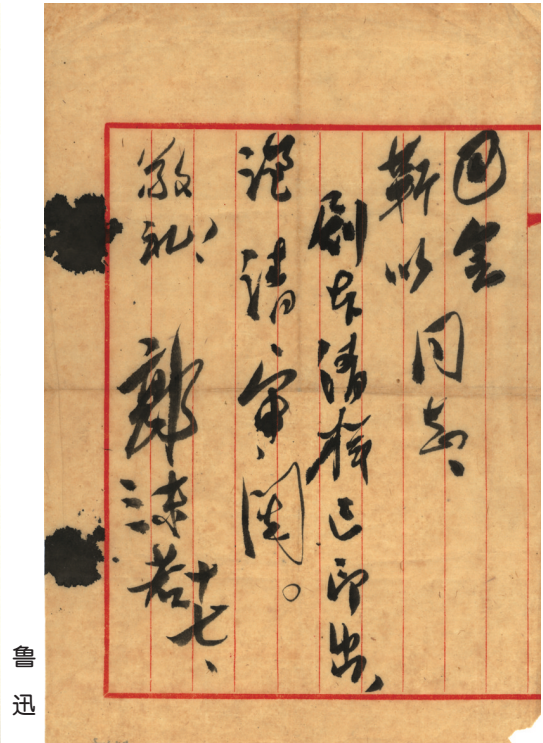 巴金
靳以 同志、
剧本清样已印出、
谨请审阅。
敬礼!
郭沫若 十七、
鲁迅